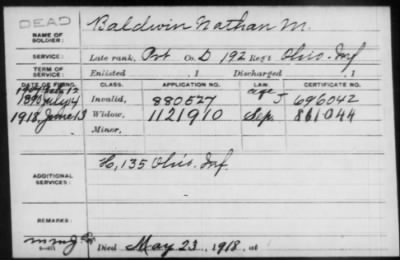 DEAD
Baldwin Nathan M.
NAME OF SOLDIER:
SERVICE: Late rank, Pvt Co. D 192 Reg't Ohio Inf
TERM OF SERVICE: Enlisted , 1 Discharged , 1
DATE OF FILING. CLASS. APPLICATION NO. LAW. CERTIFICATE NO.
1890 July 14 Invalid, 880527 age J 696042
1918 June 13 Widow, 1121910 Sep. 861044
Minor,
ADDITIONAL SERVICES: 135 Ohio Inf.
REMARKS:
Died May 23, 1918, at